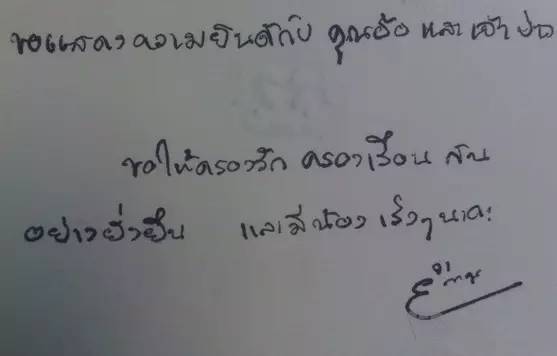 ขอแสดงความยินดีกับ คุณอ้อ และเจ้าบ่าว
ขอให้ครองรัก ครองเรือน กัน
อย่างยั่งยืน และมีน้อง เร็วๆ นาคะ